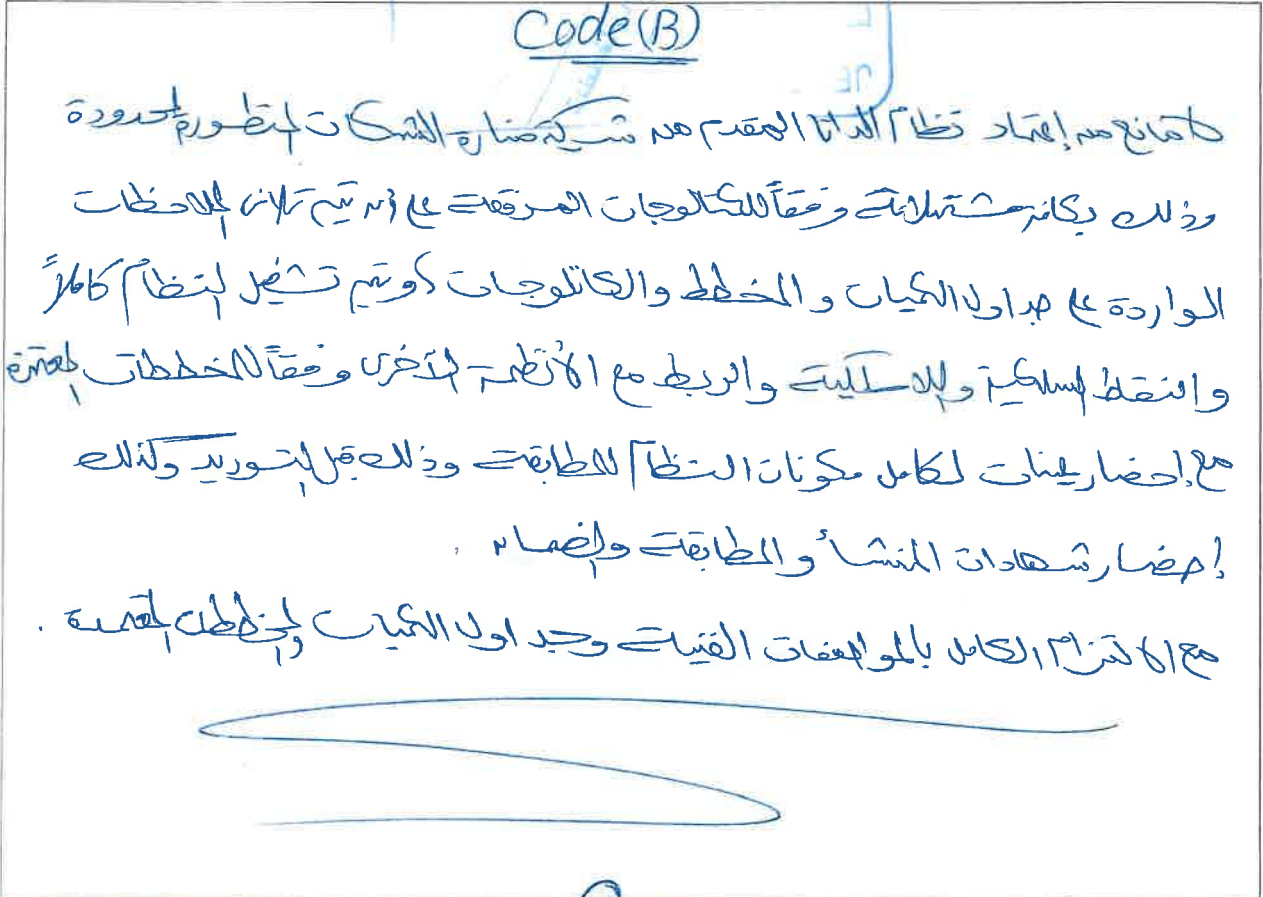 Code(B)
لا مانع من إعتماد نظام الداتا المقدم من شركة منارة الشبكات المتطورة المحدودة
وذلك بكافة مشتملاته وفقاً للكتالوجات المرفقة على أن يتم تلافى الملاحظات
الواردة على جداول الكميات والمخطط والكاتلوجات ويتم تشغيل النظام كاملاً
والنقاط السلكية واللاسلكية والربط مع الأنظمة الآخرى وفقاً للمخططات المعتمدة
مع إحضار عينات لكامل مكونات النظام للمطابقة وذلك قبل التوريد وكذلك
إحضار شهادات المنشأ والمطابقة والضمان .
مع الالتزام الكامل بالمواصفات الفنية وجداول الكميات والمخططات المعتمدة .